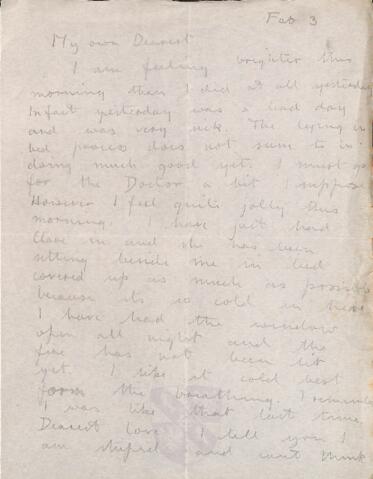 Feb 3
My own Dearest
I am feeling brighter this
morning than I did at all yesterday
Infact yesterday was a bad day
and was very sick. The lying in
bed process does not seem to in
doing much good yet. I must as
for the Doctor a bit I suppose
However I feel quite jolly this
morning. I have just had
Clare in and she has been
sitting beside me in bed
covered up as much as possible
because its so cold in here
I have had the window
open all night and the
fire has not been lit
yet. I like it cold best
for the breathing. I remember
I was like that last time.
Dearest Love I tell you I
am stupid and cant think